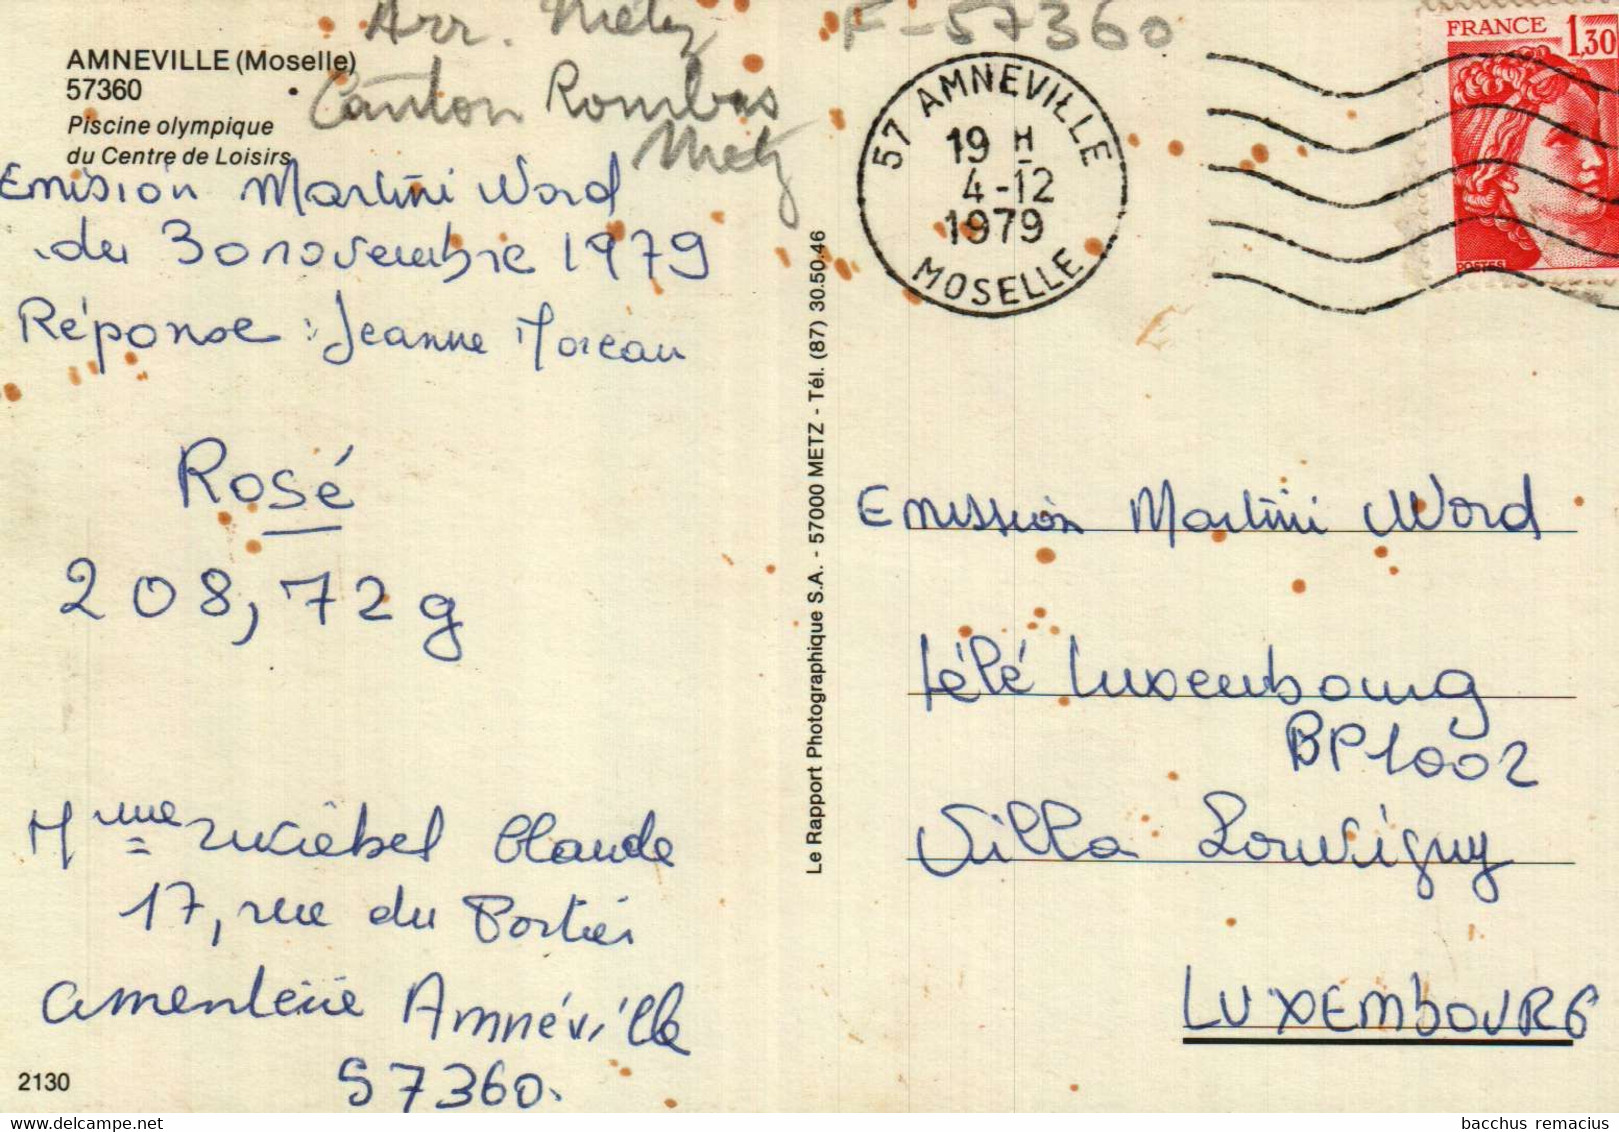 Arr. Metz
F-57360
AMNEVILLE (Moselle)
57360
Canton Rombas
Metz
Piscine olympique
du Centre de Loisirs
Emision Martini Word
du 30 novembre 1979
Réponse : Jeanne Moreau
Rosé
208,72g
Mme Claude
17, rue du Portier
Amnéville
57360.
2130
Le Rapport Photographique S.A. - 57000 METZ - Tél. (87) 30.50.46
57 AMNEVILLE
19 H
4-12
1979
MOSELLE
FRANCE 1,30
POSTES
Emission Martini Word
télé Luxembourg
BP1002
Villa Louvigny
LUXEMBOURG
bacchus remacius